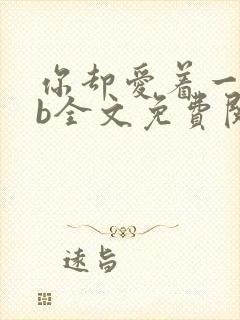 你却爱着一
b全文免费阅
远旨